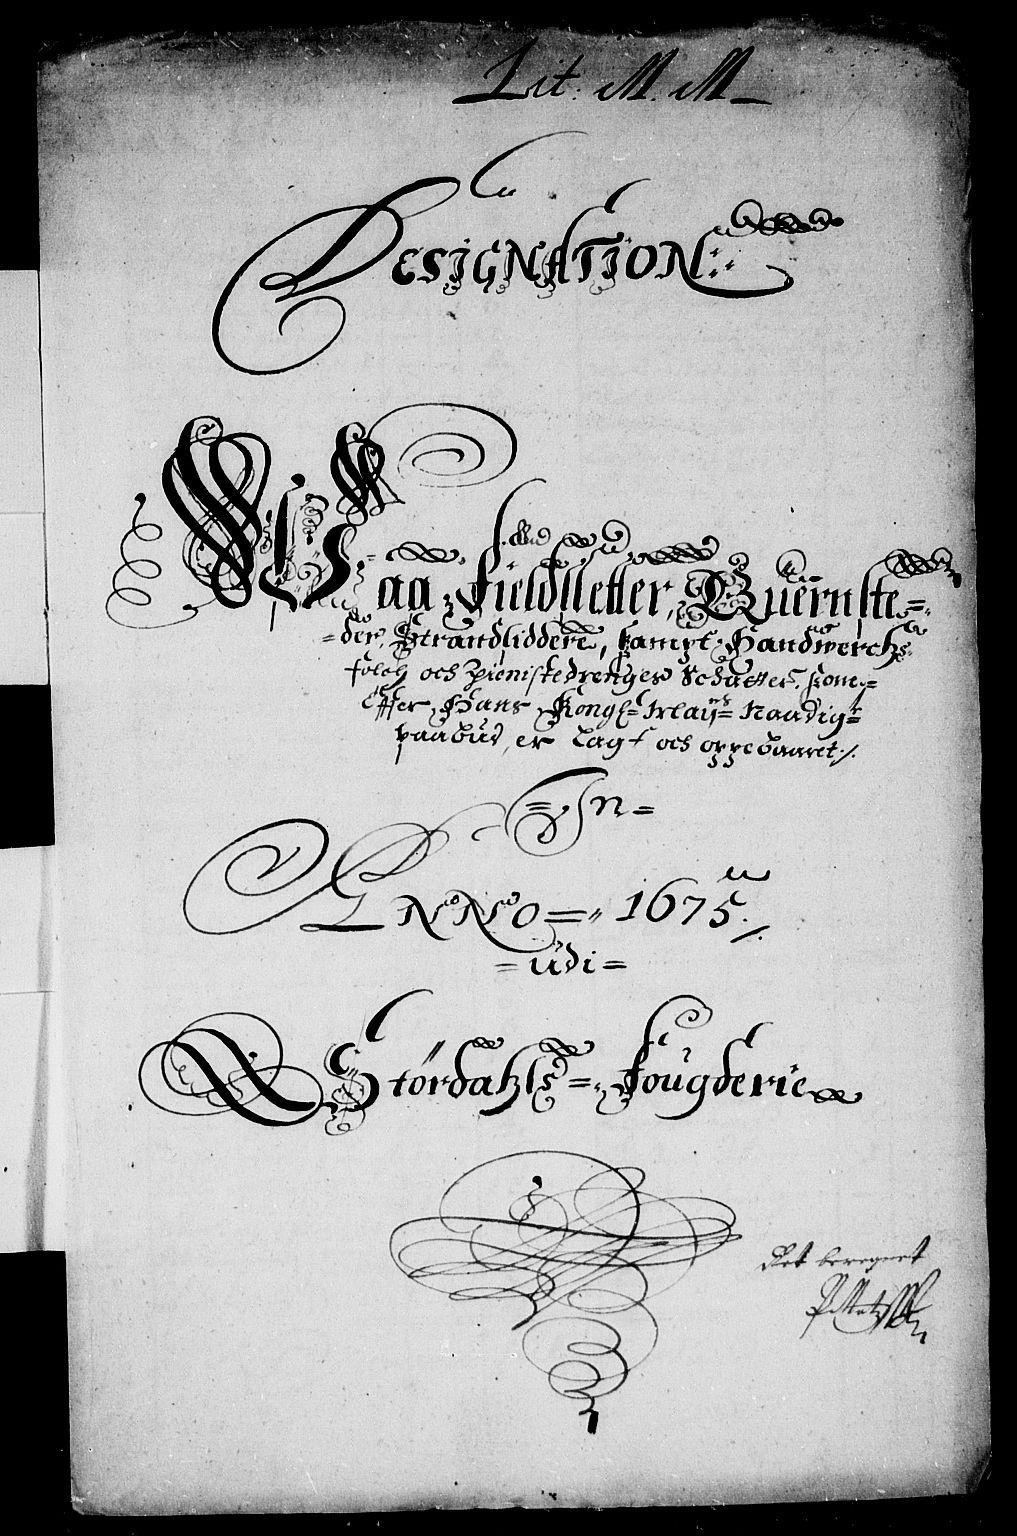 Lit. M. M
DESIGNATION:
Paa Fieldsletter, Quernste=
=der, Strandsiddere, sampt Handwerchs
folch och Thienistedrenges Schatter, som=
Effter Hans Kongl: Mayts: Naadigste
paabud, er lagt och oppebaaret./.
=In=
ANNO=1675./.
=udi=
Stördahls=Fougderie
Ret beregnet